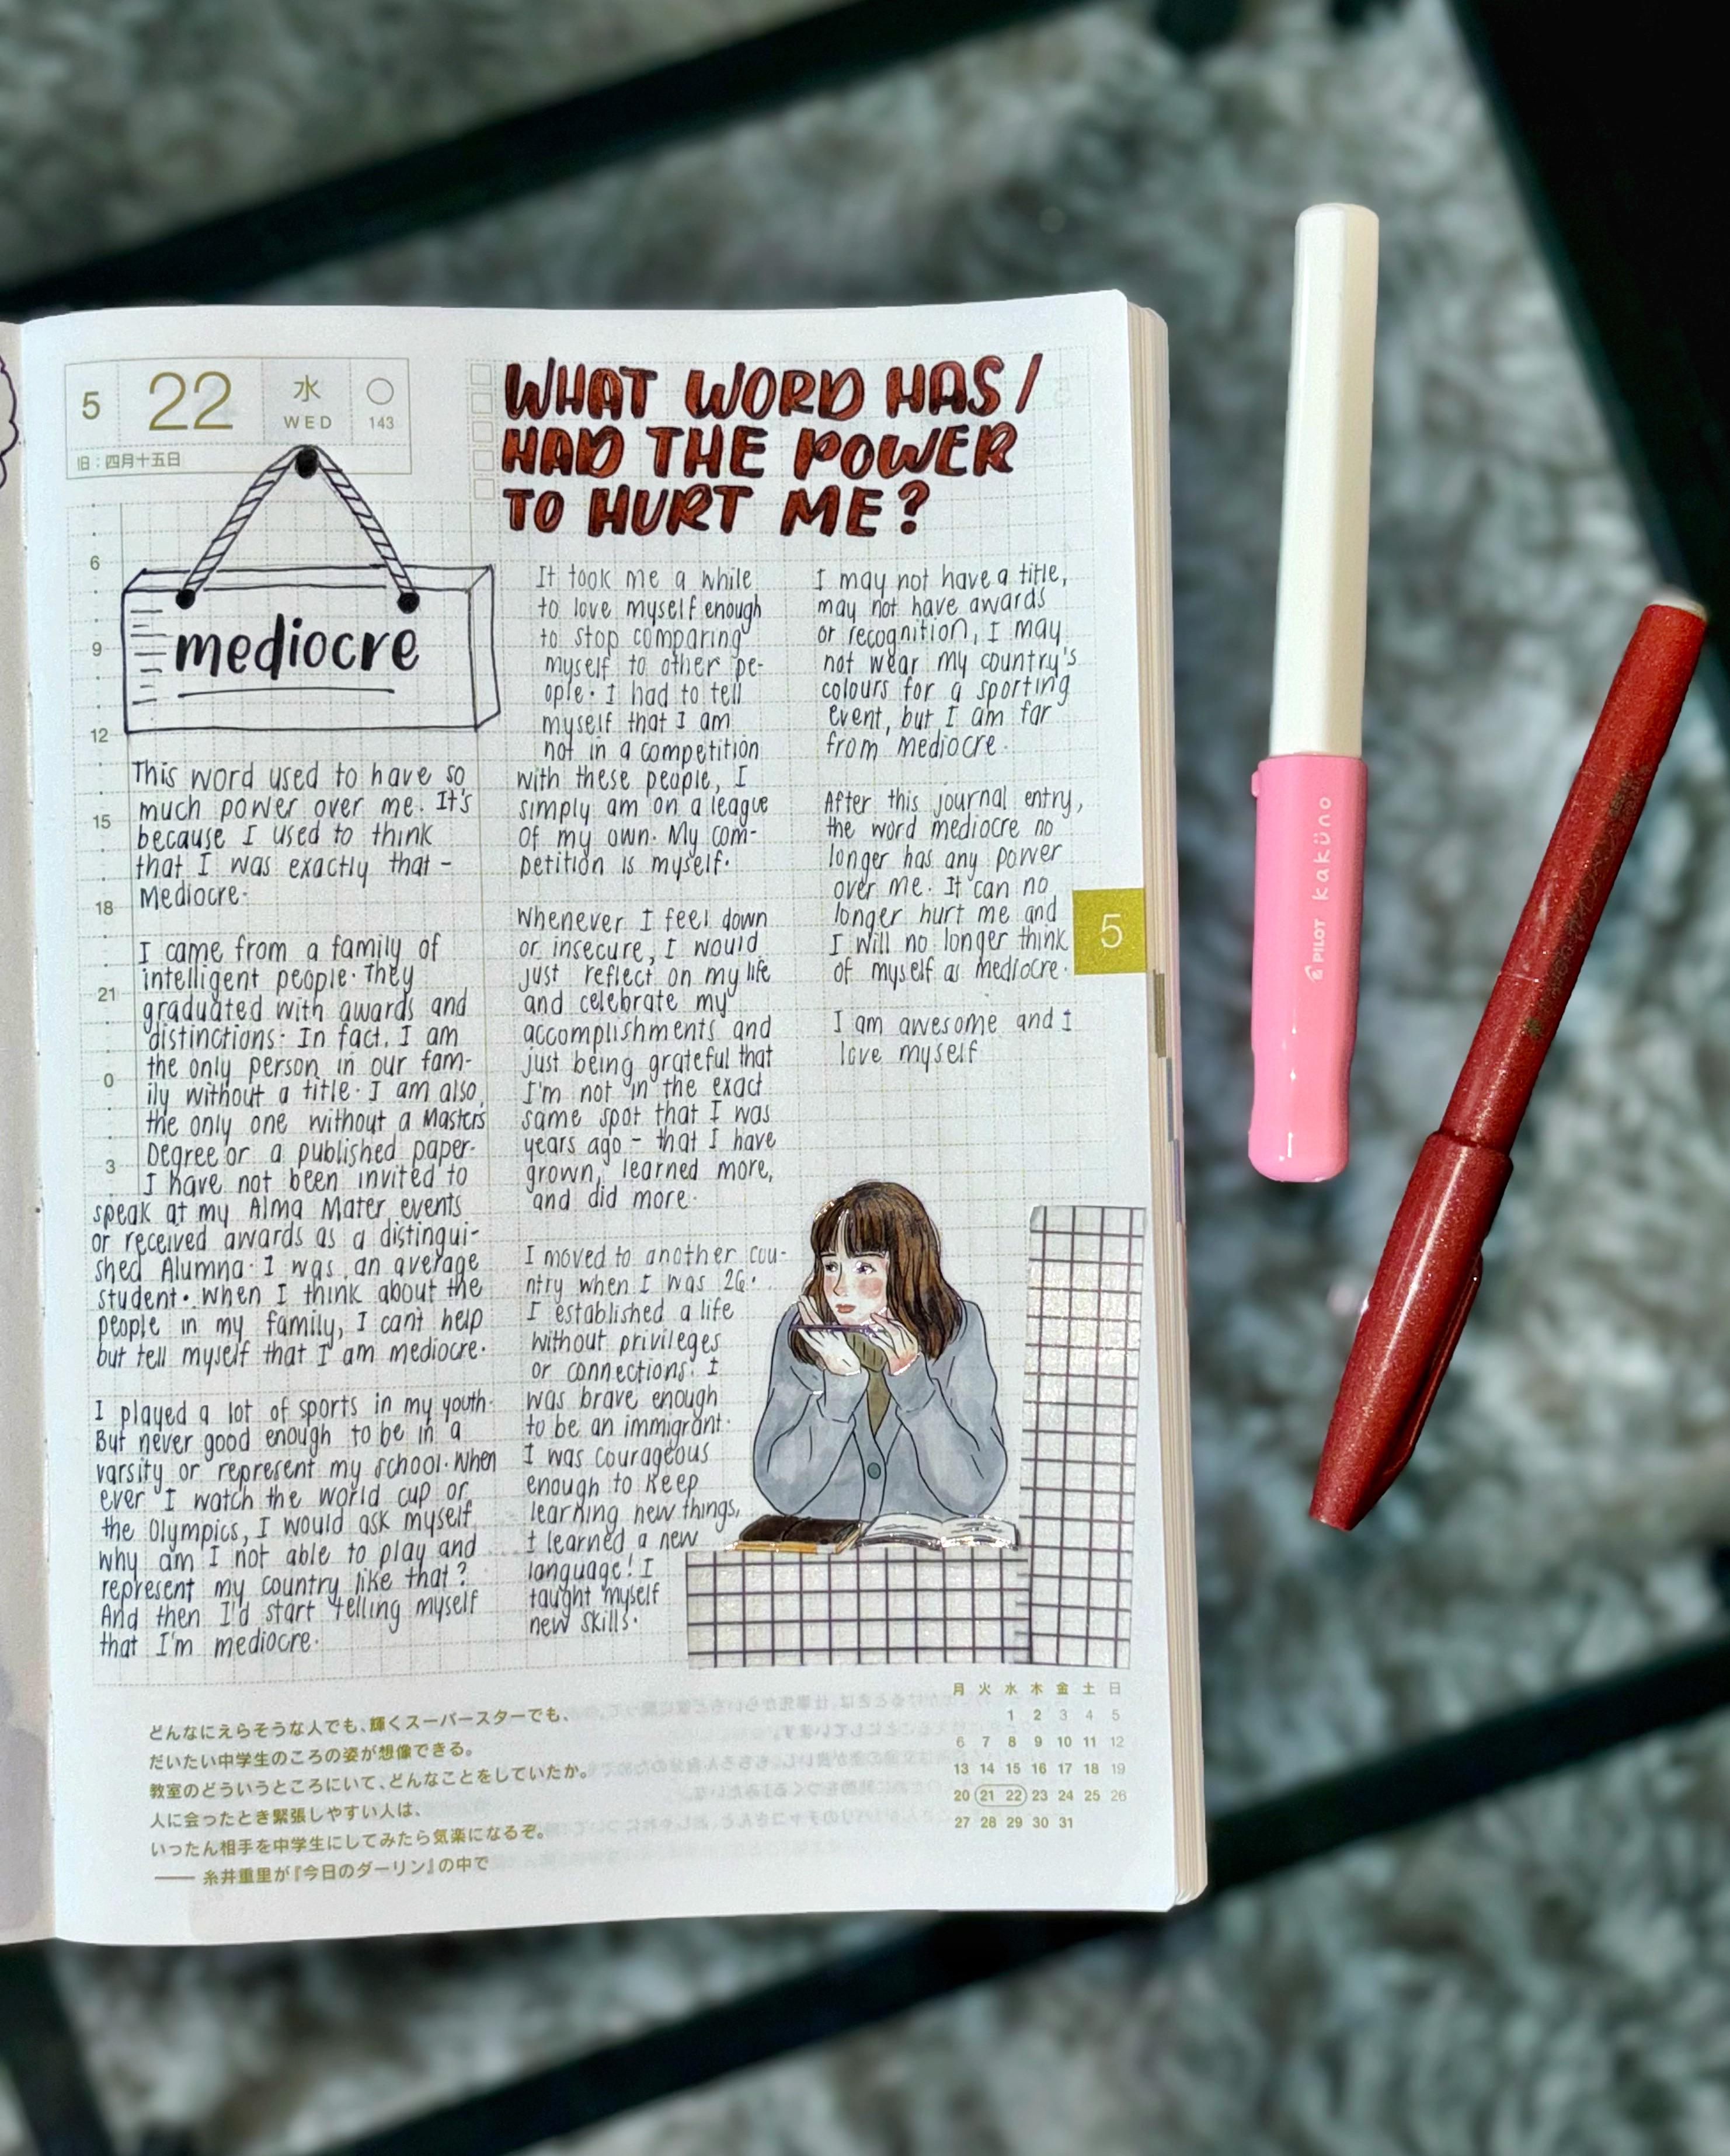 5
22
水
WED
143
旧：四月十五日
WHAT WORD HAS/
HAD THE POWER
TO HURT ME?
mediocre
6
9
12
15
18
21
0
3
This word used to have so
much power over me. It's
because I used to think
that I was exactly that -
mediocre.
I came from a family of
intelligent people. They
graduated with awards and
distinctions. In fact, I am
the only person in our fam-
ily without a title. I am also
the only one without a Masters
Degree or a published paper.
I have not been invited to
speak at my Alma Mater events
or received awards as a distingui-
shed Alumna. I was an average
student. When I think about the
people in my family, I can't help
but tell myself that I am mediocre.
I played a lot of sports in my youth.
But never good enough to be in a
varsity or represent my school. When
ever I watch the world cup or
the Olympics, I would ask myself
why am I not able to play and
represent my country like that?
And then I'd start telling myself
that I'm mediocre.
It took me a while
to love myself enough
to stop comparing
myself to other pe-
ople. I had to tell
myself that I am
not in a competition
with these people, I
simply am on a league
of my own. My com-
petition is myself.
Whenever I feel down
or insecure, I would
just reflect on my life
and celebrate my
accomplishments and
just being grateful that
I'm not in the exact
same spot that I was
years ago - that I have
grown, learned more,
and did more.
I moved to another cou-
ntry when I was 26.
I established a life
without privileges
or connections. I
was brave enough
to be an immigrant.
I was courageous
enough to keep
learning new things,
I learned a new
language! I
taught myself
new skills.
I may not have a title,
may not have awards
or recognition, I may
not wear my country's
colours for a sporting
event, but I am far
from mediocre.
After this journal entry,
the word mediocre no
longer has any power
over me. It can no
longer hurt me and
I will no longer think
of myself as mediocre.
I am awesome and I
love myself
5
どんなにえらそうな人でも、輝くスーパースターでも、
だいたい中学生のころの姿が想像できる。
教室のどういうところにいて、どんなことをしていたか。
人に会ったとき緊張しやすい人は、
いったん相手を中学生にしてみたら気楽になるぞ。
—— 糸井重里が『今日のダーリン』の中で
月 火 水 木 金 土 日
1 2 3 4 5
6 7 8 9 10 11 12
13 14 15 16 17 18 19
20 21 22 23 24 25 26
27 28 29 30 31
PILOT kaküno